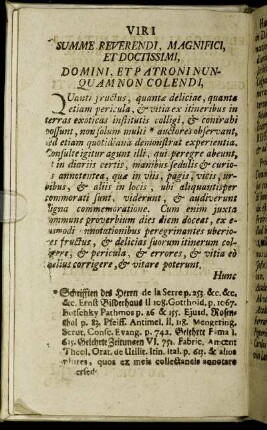 VIRI
SUMME REVERENDI, MAGNIFICI,
ET DOCTISSIMI,
DOMINI, ET PATRONI NUN-
QUAM NON COLENDI,
Quanti fructus, quantæ deliciæ, quanta
etiam pericula, & vitia ex itineribus in
terras exoticas institutis colligi, & contrahi
possunt, non solum multi * auctores observant,
sed etiam quotidiana demonstrat experientia.
Consulte igitur agunt illi, qui peregre abeunt,
ut in diariis certis, manibus sedulis & curio-
s annotentea, quæ in viis, pagis, vicis, ur-
ibus, & aliis in locis, ubi aliquantisper
commorati sunt, viderunt, & audiverunt
digna commemoratione. Cum enim juxta
commune proverbium dies diem doceat, ex e-
usmodi annotationibus peregrinantes uberio-
res fructus, & delicias suorum itinerum col-
ligere, & pericula, & errores, & vitia eo
melius corrigere, & vitare poterunt.
Hunc
* Schrifften des Herrn de la Serre p. 253. &c. &c.
&c. Ernst Bilderhaus II 108. Gotthold, p. 1067.
Butschky Pathmos p. 26 & 155. Ejusd. Rosen-
thal p. 83. Pfeiff. Antimel. II, 118. Mengering,
Scrut. Consc. Evang. p. 742. Gelehrte Fama I.
615. Gelehrte Zeitungen VI. 75. Fabric. Amœnit
Theol. Orat. de Utilit. Itin. ital. p. 613. & alios
plures, quos ex meis collectaneis annotare